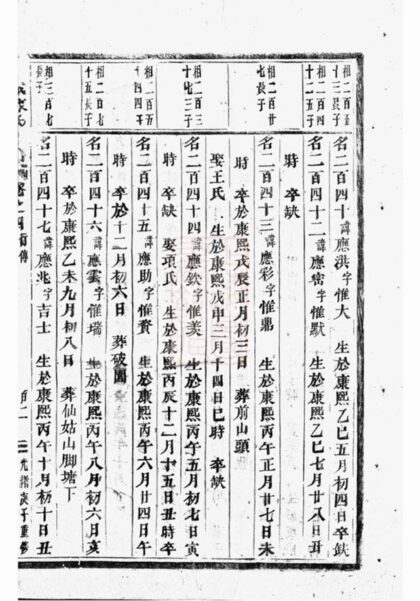 相二百五
十三長子
名二百四十 諱應洪字惟大 生於康熙乙巳五月初四日卒缺
相二百四
十二五子
名二百四十二 諱應密字惟默 生於康熙乙巳七月廿八日丑
時 卒缺
相二百廿
七長子
名二百四十三 諱應彩字惟鼎 生於康熙丙午正月廿七日未
時 卒於康熙戊辰正月初三日 葬前山頭
娶王氏 生於康熙戊申三月十四日巳時 卒缺
相二百三
十七三子
名二百四十四 諱應欽字惟美 生於康熙丙午五月初七日寅
時 卒缺 娶項氏 生於康熙丙辰十二月十五日丑時卒
相二百五
十四四子
名二百四十五 諱應助字惟賚 生於康熙丙午六月廿四日午
時 卒於十二月初六日 葬破園
名二百四十六 諱應雲字惟瑞 生於康熙丙午八月初六日亥
時 卒於康熙乙未九月初八日 葬仙姑山脚塘下
相二百七
十五長子
名二百四十七 諱應兆字吉士 生於康熙丙午十月初十日丑
百二 光緒庚子重修